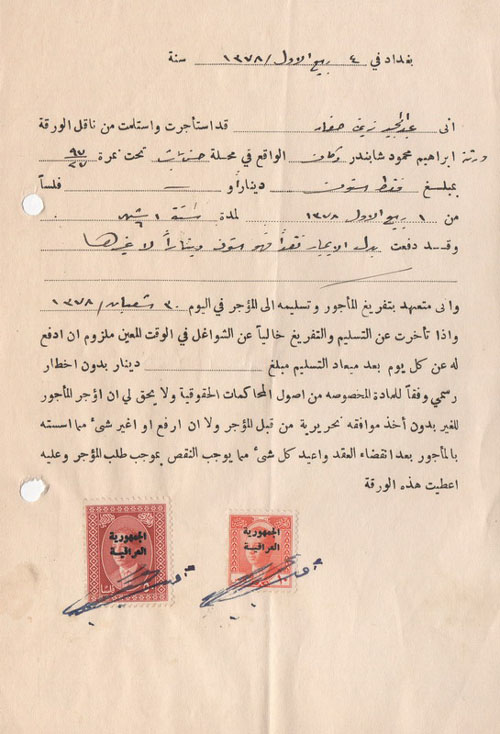 بغداد في ٤ ربيع الاول / ١٣٧٨ سنة
انى عبد المجيد زين صفار قد استأجرت واستلمت من ناقل الورقة
ورثة ابراهيم محمود شابندر دكان الواقع في محلة تحت نمرة ٩٧/٢٧
بمبلغ فقط ستون ديناراً و — فلساً
من ١ ربيع الاول ١٣٧٨ لمدة ستة ٦ اشهر
وقد دفعت بدل الايجار نقداً فهو ستون ديناراً لا غيرها
وانى متعهد بتفريغ المأجور وتسليمه الى المؤجر في اليوم ٣٠ شعبان / ١٣٧٨
واذا تأخرت عن التسليم والتفريغ خالياً عن الشواغل في الوقت المعين ملزوم ان ادفع
له عن كل يوم بعد ميعاد التسليم مبلغ دينار بدون اخطار
رسمي وفقاً للمادة المخصوصه من اصول المحاكمات الحقوقية ولا يحق لي ان اؤجر المأجور
للغير بدون أخذ موافقه تحريرية من قبل المؤجر ولا ان ارفع او اغير شىء مما اسسته
بالمأجور بعد انقضاء العقد واعيد كل شىء مما يوجب النقص بموجب طلب المؤجر وعليه
اعطيت هذه الورقة
الجمهورية
العراقية
الجمهورية
العراقية